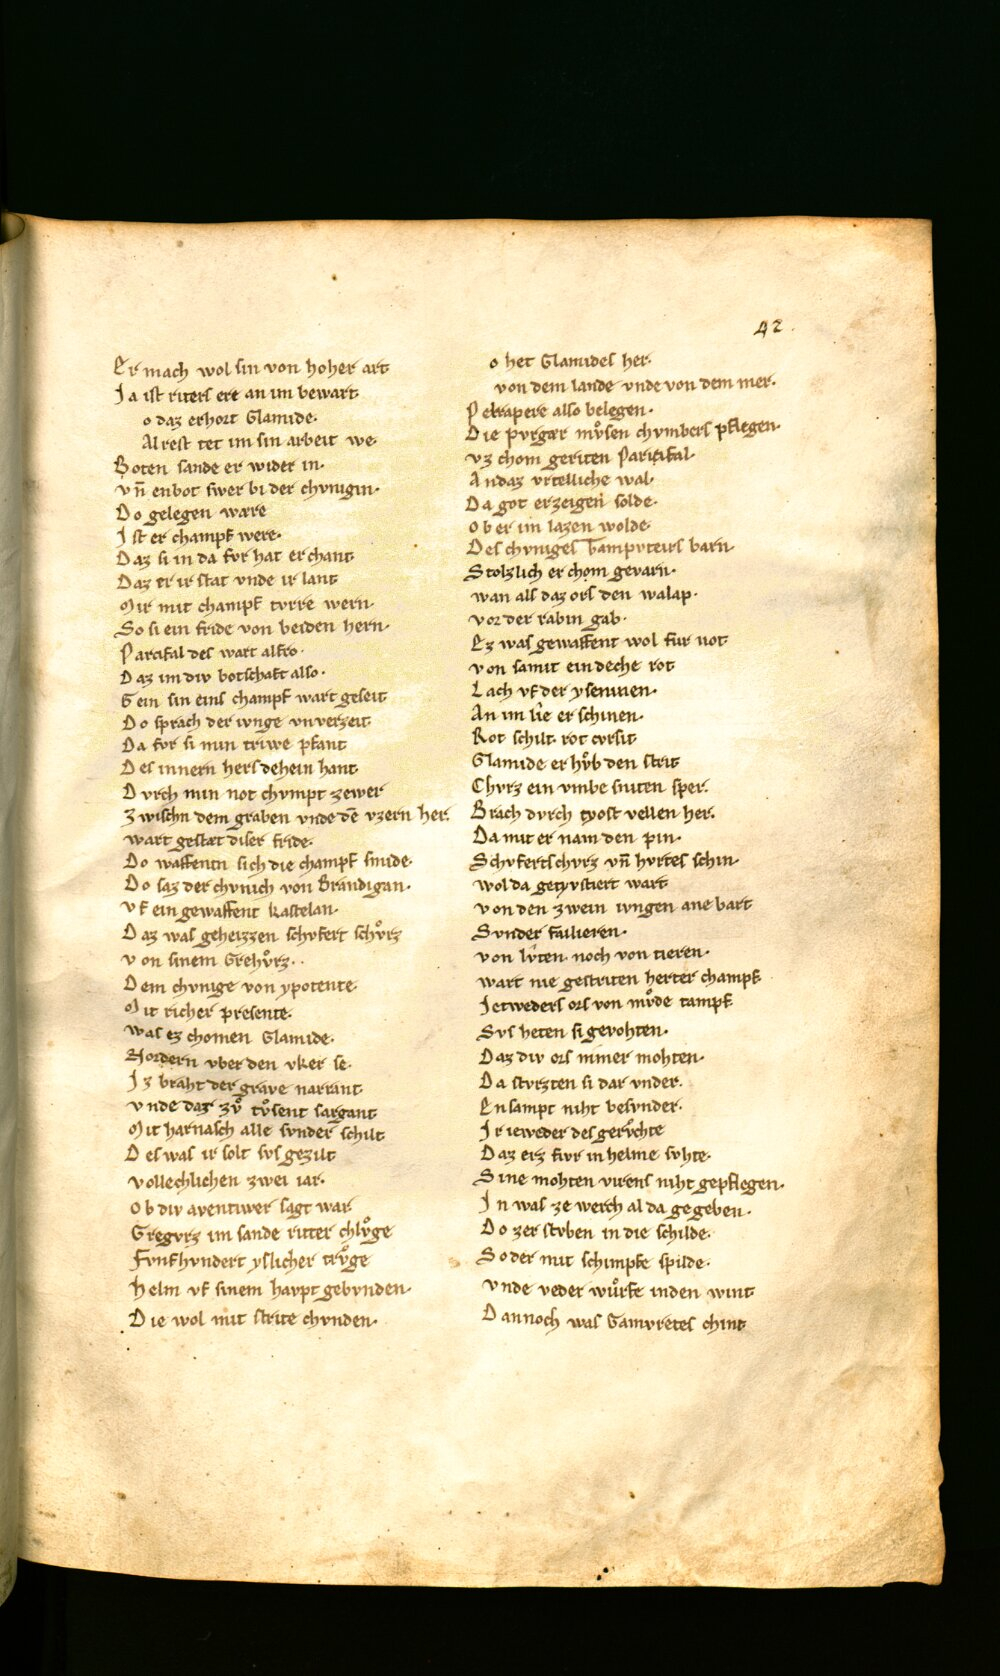 42.
Er mach wol sin von hoher art
Ja ist riters ere an im bewart
o daz erhort Glamide·
Alrest tet im sin arbeit we·
Boten sande er wider in·
vn̄ enbot swer bi der chvnigin·
Do gelegen wære
Ist er champf were·
Daz si in da fvr hat erchant
Daz er ir stat vnde ir lant
Mir mit champf tvrre wern·
So si ein fride von beiden hern·
Parcifal des wart alfro·
Daz im div botschaft also·
Gein sin eins champf wart geseit
Do sprach der ivnge vnverzeit
Da fvr si min triwe pfant
Des innern hers dehein hant
Dvrch min not chvmpt zewer
Zwischn dem graben vnde dē vzern her·
wart gestæt diser fride·
Do waffentn sich die champf smide·
Do saz der chvnich von Brandigan·
vf ein gewaffent kastelan·
Daz was geheizzen schvfert schvͦrz
von sinem Grehvͦrz··
Dem chvnige von ypotente·
Mit richer presente·
was ez chomen Glamide·
Nordern vber den vker se·
Iz braht der grave narrant
vnde daz zvͦ tvͦsent sargant
Mit harnasch alle svnder schilt
Des was ir solt svs gezilt
vollechlichen zwei iar·
Ob div aventiwer sagt war
Gregvrz im sande ritter chlvͦge
Fvnfhvndert yslicher trvͦge
Helm vf sinem havpt gebvnden·
Die wol mit strite chvnden·
o het Glamides her·
von dem lande vnde von dem mer·
Petrapere also belegen·
Die pvrgær mvͦsen chvmbers pflegen·
vz chom geriten Parcifal·
An daz vrtelliche wal·
Da got erzeigen solde·
Ob er im lazen wolde·
Des chvniges Gampvreis barn·
Stolzlich er chom gevarn·
wan als daz ors den walap·
vor der rabin gab·
Ez was gewaffent wol fur not
von samit ein deche rot
Lach vf der yseninen·
An im sie er schinen·
Rot schilt· rot cvrsit
Glamide er hvͦb den strit
Chvrz ein vmbe sniten sper·
Brach dvrch tyost vellen her·
Da mit er nam den pin·
Schvferts chvrz vn̄ hvrtes schin·
wol da getyvstiert wart
von den zwein ivngen ane bart
Svnder failieren·
von lvten· noch von tieren·
wart nie gestriten herter champf
Ietweders ors von mvͦde tampf·
Svs heten si gevohten·
Daz div ors nimer mohten·
Da stvrzten si dar vnder·
Ensampt niht besvnder·
Ir ieweder des gervͦchte
Daz erz fivr in helme svhte·
Sine mohten virens niht gepflegen·
In was ze werch al da gegeben·
Do zer stvben in die schilde·
So der mit schimpfe spilde·
vnde veder wvͦrfe inden wint
Dannoch was Gamvretes chint